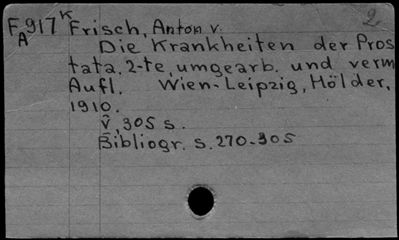 F 917 K Frisch, Anton v. 2
A
Die Krankheiten der Pros
tata. 2-te, umgearb. und verm
Aufl. Wien-Leipzig, Hölder,
1910.
V, 305 s.
Bibliogr. s. 270-305